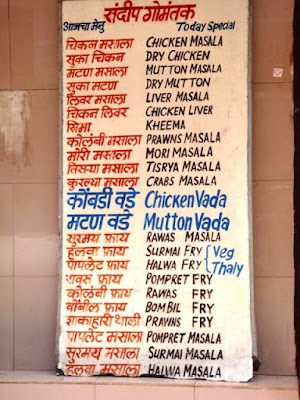 संदीप गोमंतक
आजचा मेनु Today Special
चिकन मसाला CHICKEN MASALA
सुका चिकन DRY CHICKEN
मटण मसाला MUTTON MASALA
सुका मटण DRY MUTTON
लिवर मसाला LIVER MASALA
चिकन लिवर CHICKEN LIVER
खिमा KHEEMA
कोलंबी मसाला PRAWNS MASALA
मोरी मसाला MORI MASALA
तिसऱ्या मसाला TISRYA MASALA
कुरल्या मसाला CRABS MASALA
कोंबडी वडे Chicken Vada
मटण वडे Mutton Vada
सुरमय फ्राय RAWAS MASALA
हलवा फ्राय SURMAI FRY Veg
पापलेट फ्राय HALWA FRY Thaly
रावस फ्राय POMPRET FRY
कोलंबी फ्राय RAWAS FRY
बोंबील फ्राय BOMBIL FRY
शाकाहारी थाळी PRAWNS FRY
पापलेट मसाला POMPRET MASALA
सुरमय मसाला SURMAI MASALA
हलवा मसाला HALWA MASALA